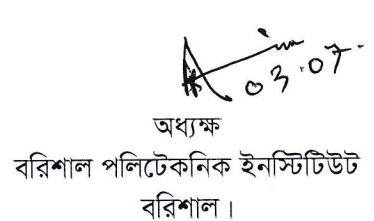 03.07.
অধ্যক্ষ
বরিশাল পলিটেকনিক ইনস্টিটিউট
বরিশাল।